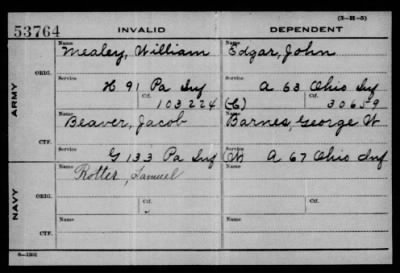 (3-H-5)
53764 INVALID DEPENDENT
Name Name
Mealey, William Edgar, John
ORIG. Service Service
H 91 Pa Inf A 63 Ohio Inf
Ctf. Ctf.
103224 (C) 30659
ARMY
Name Name
Beaver, Jacob Barnes, George W
CTF. Service Service
G 133 Pa Inf (W) A 67 Ohio Inf
Name Name
Rotter, Samuel
ORIG. Service Service
Ctf. Ctf.
NAVY
Name Name
CTF.